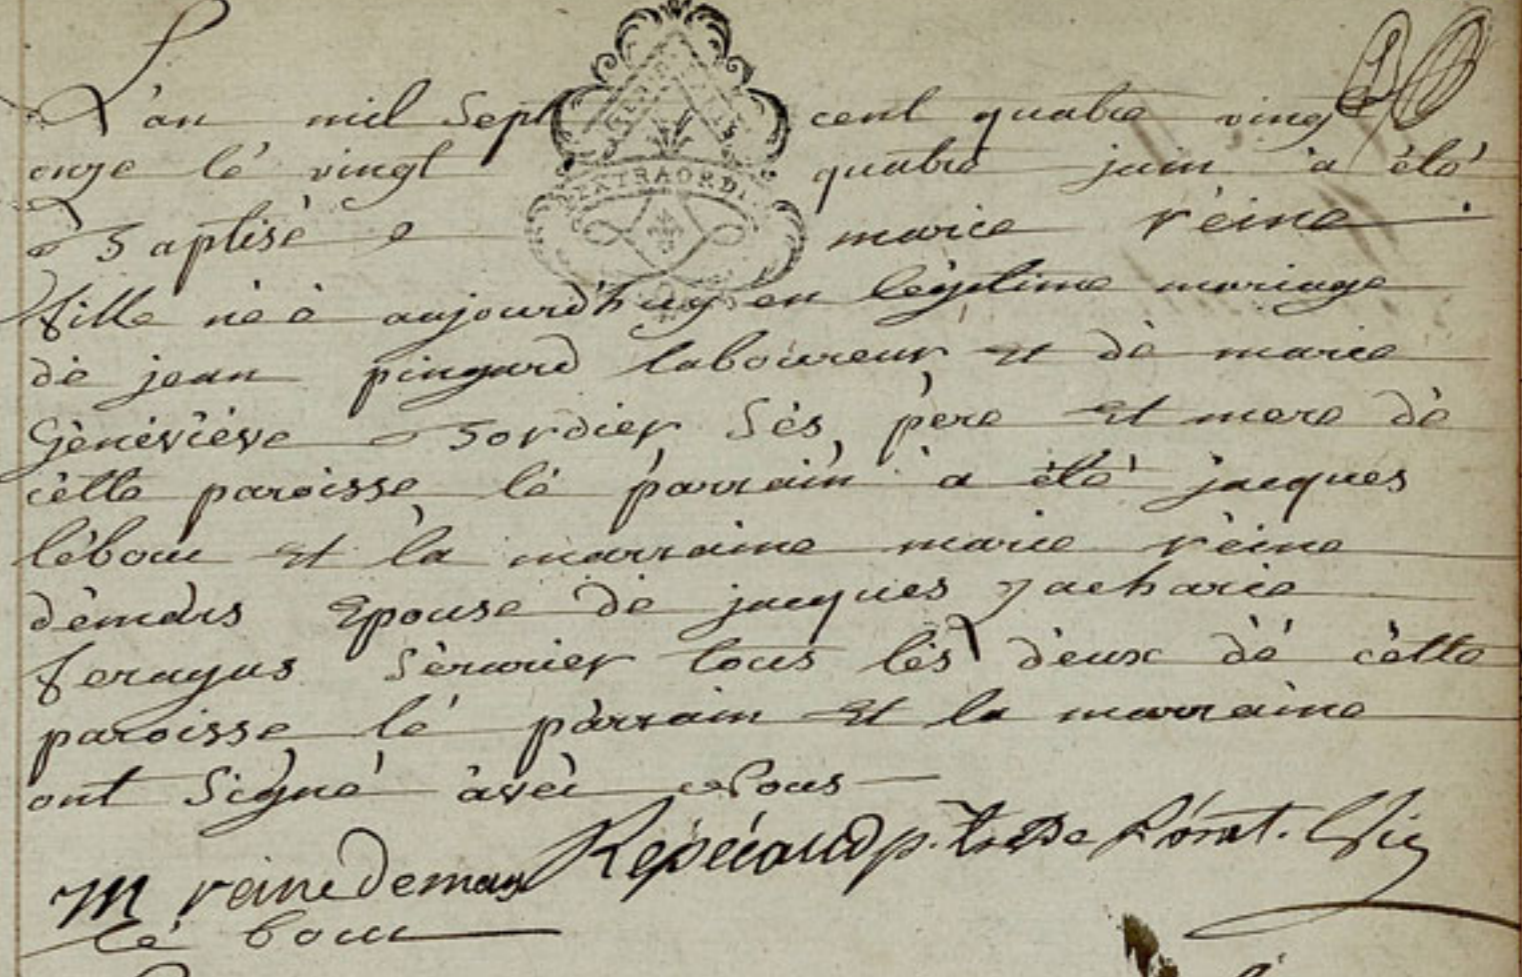 L'an mil Sept cent quatre ving
onze lé vingt quatre juin a été
Baptisé e marie réine
fille néé aujourd'huy en légitime mariage
dè jean pingard laboureur Et dè marie
Géneviéve Bordier Sès père Et mere dè
cètte paroisse lé parrain a été jacques
lébour Et la marraine marie réine
dèmars Epouse dè jacques Zacharie
feragus Sérurier tous lès deux dé cètte
paroisse lé parrain Et la marraine
ont Signé avèc Nous
M reine Demars p.tre De
lé bour